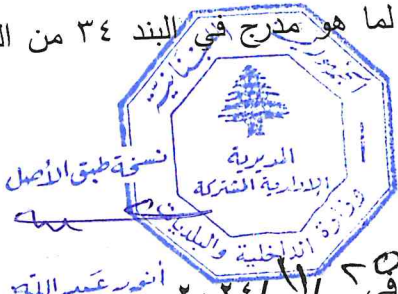 لما هو مدرج في البند ٣٤ من ال
الجمهورية اللبنانية
المديرية
الادارية المشتركة
وزارة الداخلية والبلديات
نسخة طبق الأصل
أنور عبد الله
في